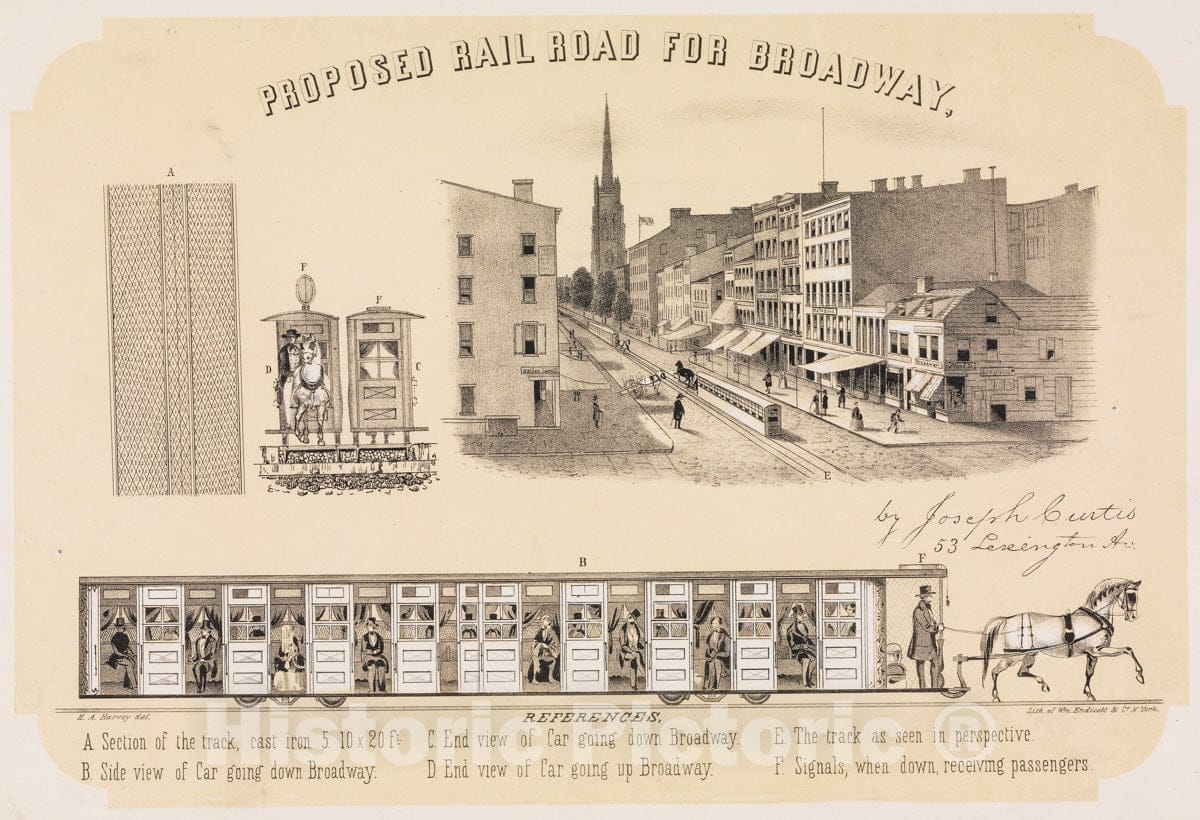 PROPOSED RAIL ROAD FOR BROADWAY,
A
F
F
D
C
Maiden Lane
E
by Joseph Curtis
53 Lexington Av.
B
F
H. A. Harvey del.
Lith. of Wm. Endicott & Co. N. York.
REFERENCES,
A. Section of the track, cast iron 5. 10 x 20 ft.
B. Side view of Car going down Broadway.
C. End view of Car going down Broadway.
D. End view of Car going up Broadway.
E. The track as seen in perspective.
F. Signals, when down, receiving passengers.
Historic Pictoric ®